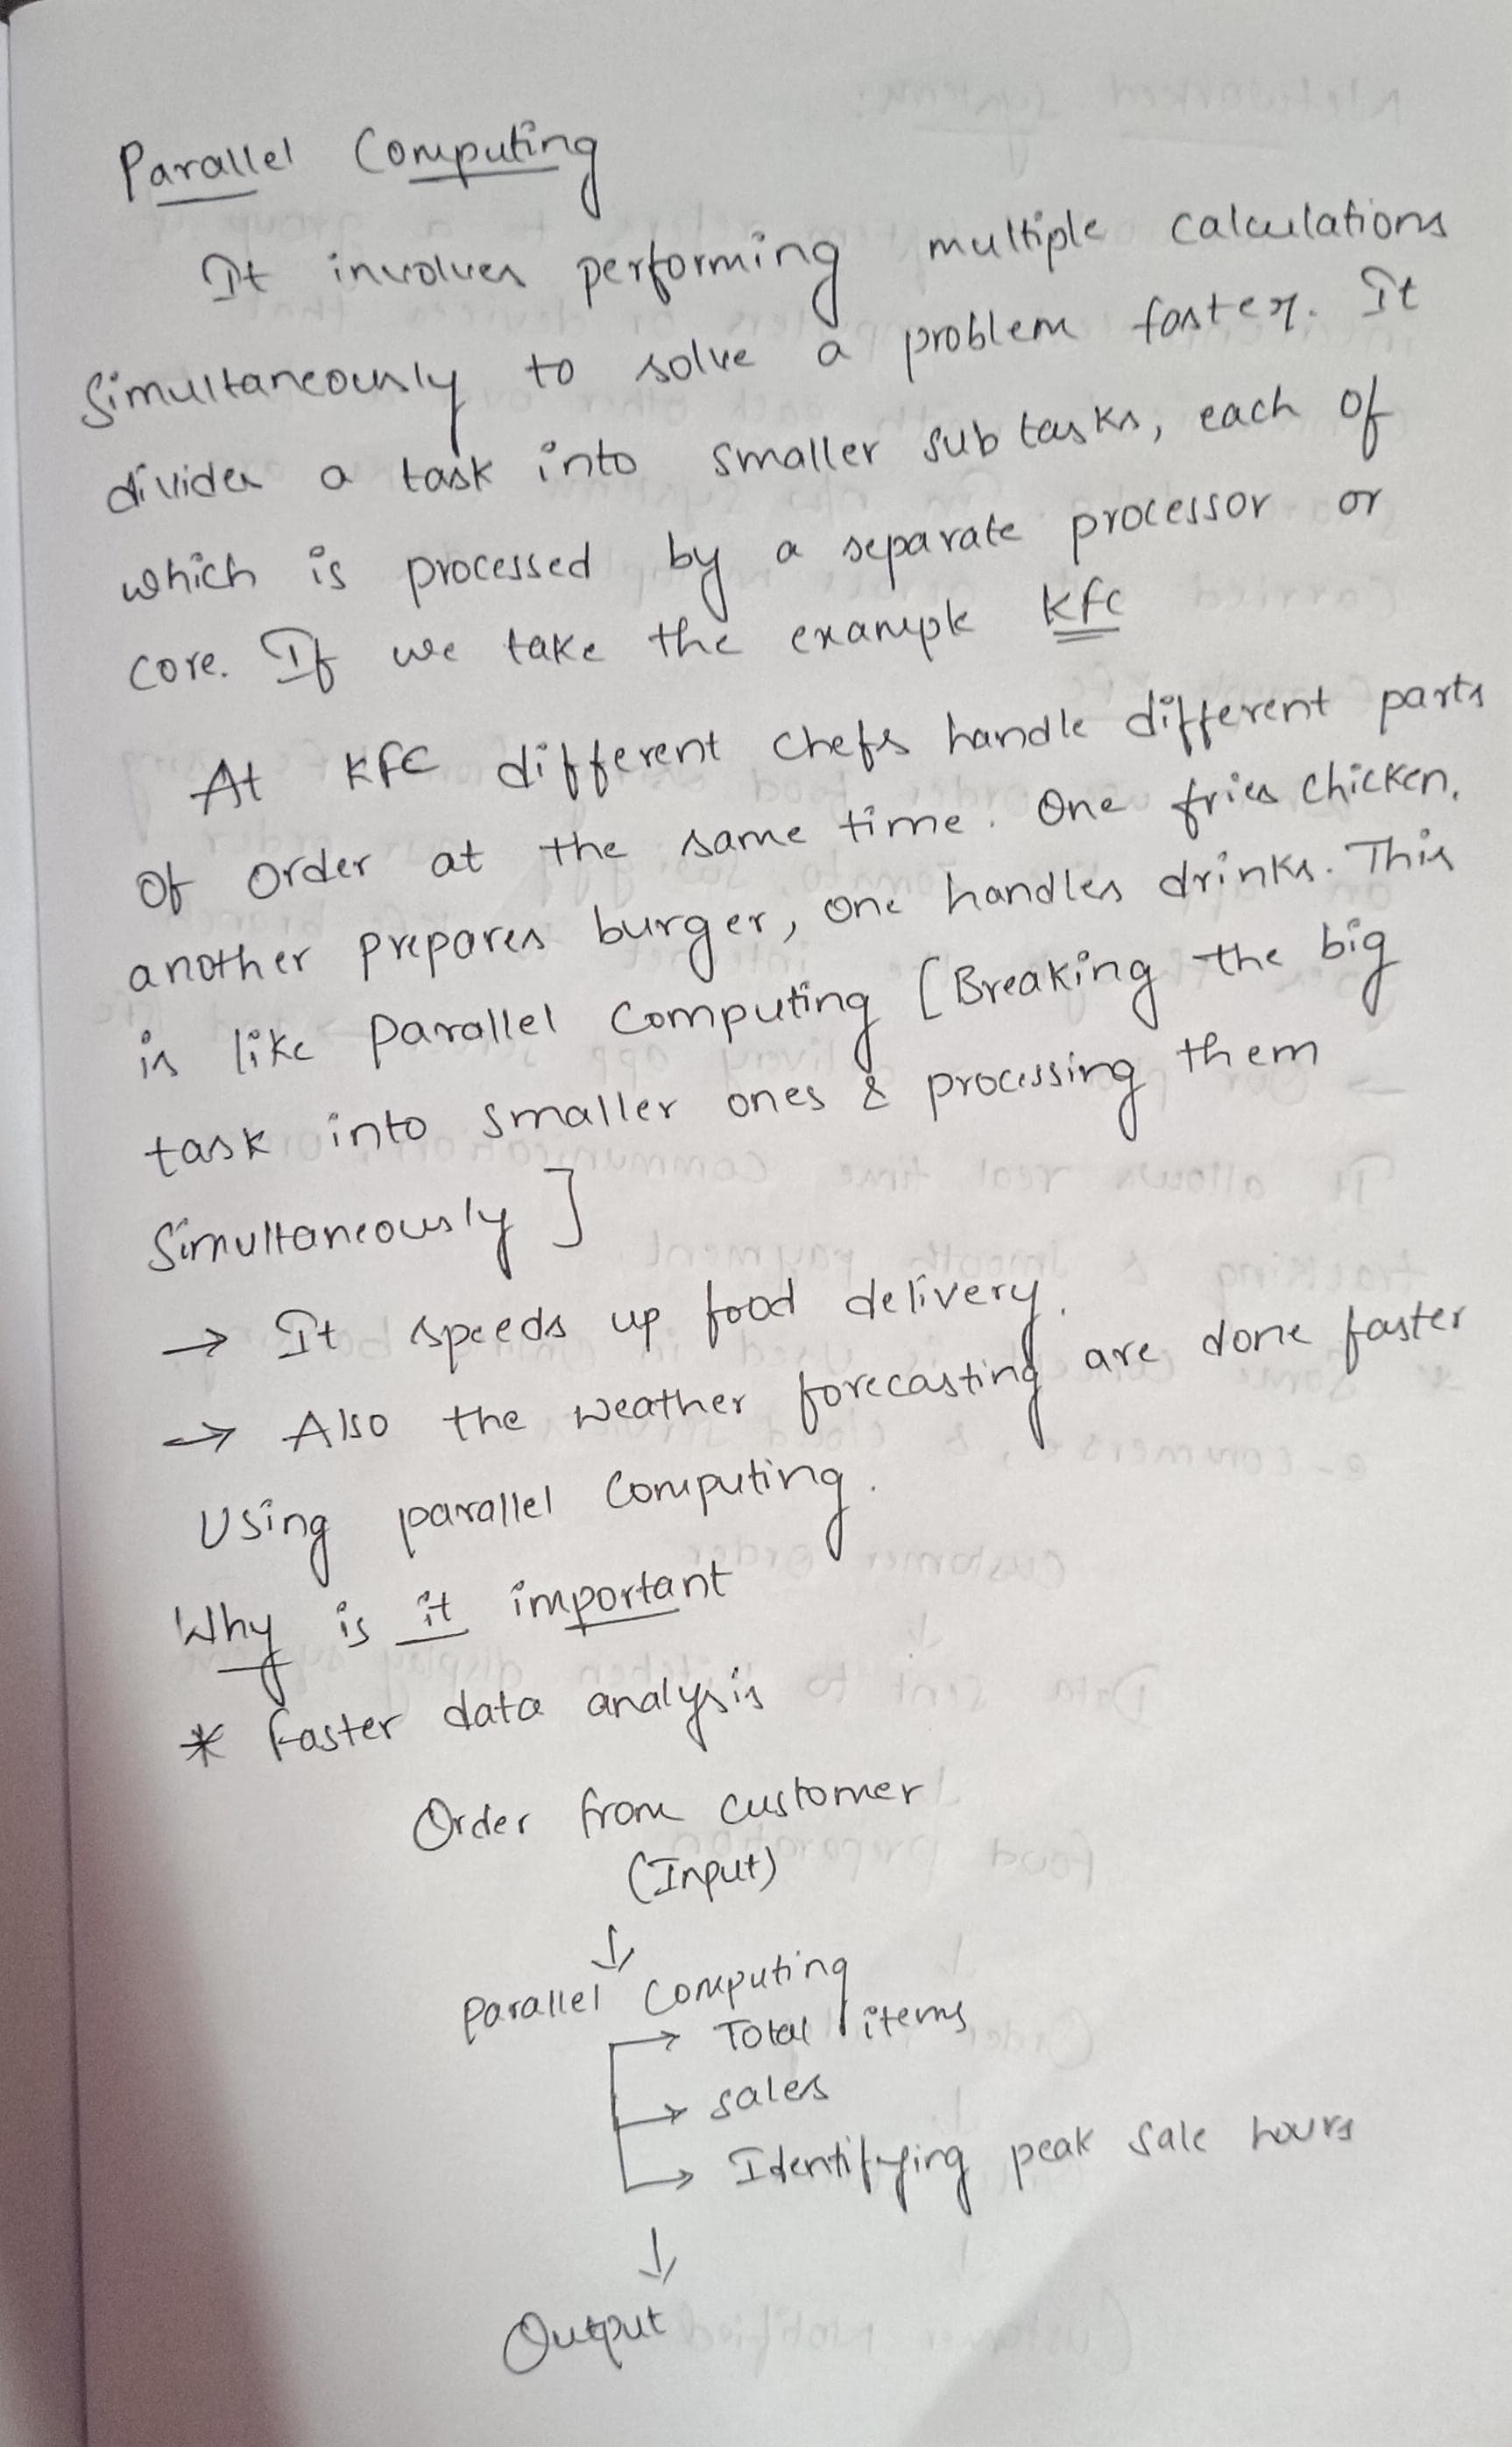 Parallel Computing
It involves performing multiple calculations
Simultaneously to solve a problem faster. It
divides a task into smaller sub tasks, each of
which is processed by a separate processor or
core. If we take the example KFC
At KFC different chefs handle different parts
of order at the same time. One fries chicken,
another prepares burger, one handles drinks. This
is like parallel computing [Breaking the big
task into smaller ones & processing them
Simultaneously]
→ It speeds up food delivery.
→ Also the weather forecasting are done faster
Using parallel computing.
Why is it important
* Faster data analysis
Order from customer
(Input)
↓
Parallel Computing
→ Total items
→ sales
→ Identifying peak sale hours
↓
Output